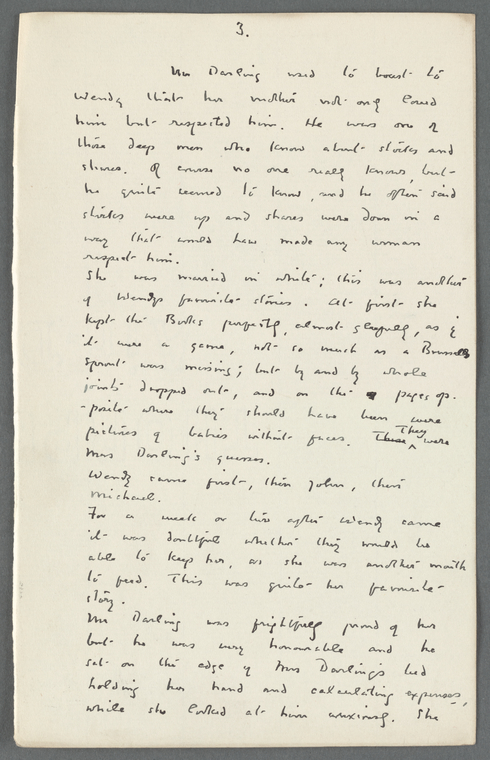 3.
Mr Darling used to boast to
Wendy that her mother not only loved
him but respected him. He was one of
those deep men who know about stocks and
shares. Of course no one really knows, but
he quite seemed to know, and he often said
stocks were up and shares were down in a
way that would have made any woman
respect him.
She was married in white; this was another
of Wendys favourite stories. At first she
kept the Books perfectly, almost gleefully, as if
it were a game, not so much as a Brussels
sprout was missing; but by and by whole
joints dropped out, and on the pages op-
-posite where they should have been were
pictures of babies without faces. They were
Mrs Darling's guesses.
Wendy came first, then John, then
Michael.
For a week or two after Wendy came
it was doubtful whether they would be
able to keep her, as she was another mouth
to feed. This was quite her favourite
story.
Mr Darling was frightfully proud of her
but he was very honourable and he
sat on the edge of Mrs Darling's bed
holding her hand and calculating expenses,
while she looked at him anxiously. She